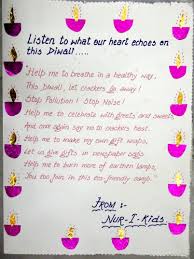 Listen to what our heart echoes on
this Diwali.....
Help me to breathe in a healthy way,
This Diwali, let crackers go away!
Stop Pollution! Stop Noise!
Help me to celebrate with greets and sweets
And once again say no to crackers heat.
Help me to make my own gift wraps.
Let us give gifts in newspaper bags
Help me to burn more of earthen lamps,
You too join in this eco-friendly camp.
FROM :-
NUR-I-Kids.